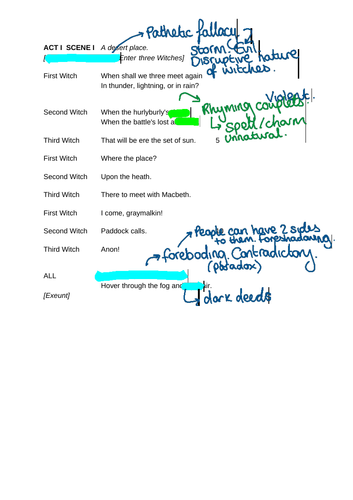 Pathetic fallacy
ACT I SCENE I A desert place.
storm. Evil
[ Enter three Witches]
Disruptive nature
of witches.
First Witch When shall we three meet again
In thunder, lightning, or in rain?
Violent
Rhyming couplets
Second Witch When the hurlyburly's
When the battle's lost a
spell/charm
unnatural.
Third Witch That will be ere the set of sun. 5
First Witch Where the place?
Second Witch Upon the heath.
Third Witch There to meet with Macbeth.
First Witch I come, graymalkin!
Second Witch Paddock calls.
People can have 2 sides
to them. foreshadowing.
Third Witch Anon!
foreboding. Contradictory.
(paradox)
ALL
Hover through the fog and ir.
[Exeunt]
dark deeds